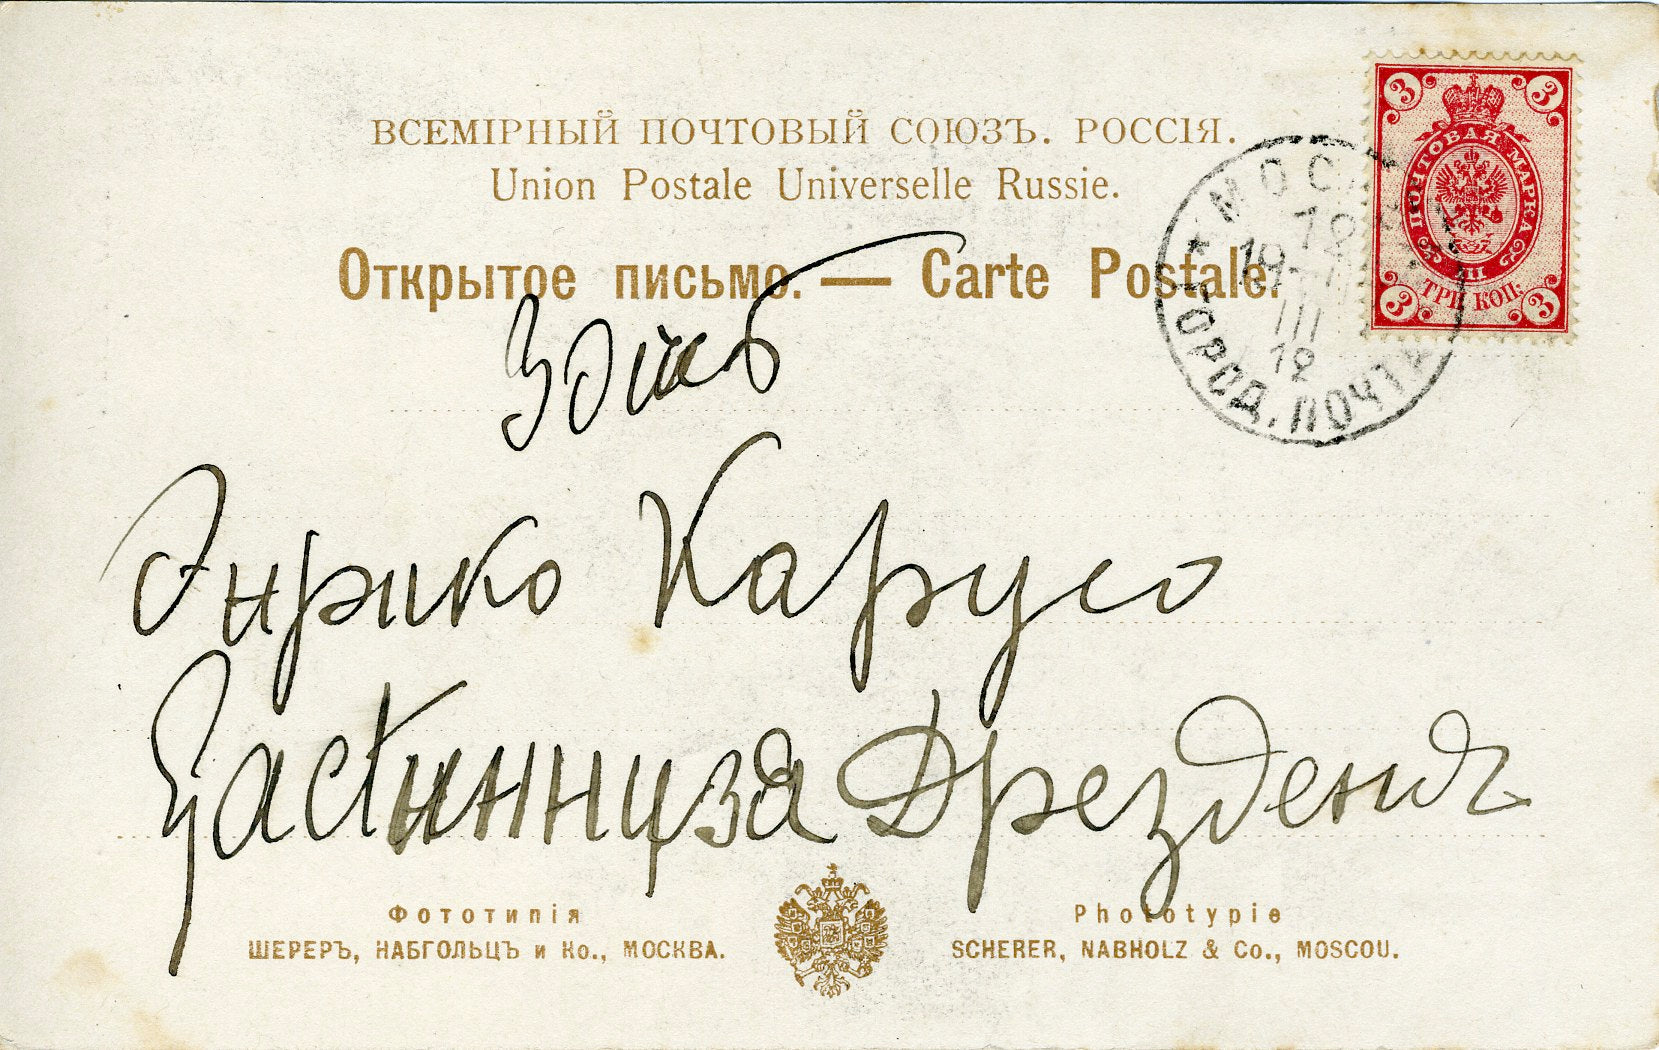 ВСЕМІРНЫЙ ПОЧТОВЫЙ СОЮЗЪ. РОССІЯ.
Union Postale Universelle Russie.
Открытое письмо. — Carte Postale.
3 3
ПОЧТОВАЯ МАРКА
ТРИ КОП.
3 3
МОСК
12
19
III
12
ГОРОД. ПОЧТА
Здѣсь
Энрико Карузо
Гастинница Дрезденъ
Фототипія
ШЕРЕРЪ, НАБГОЛЬЦЪ и Ко., МОСКВА.
Phototypie
SCHERER, NABHOLZ & Co., MOSCOU.